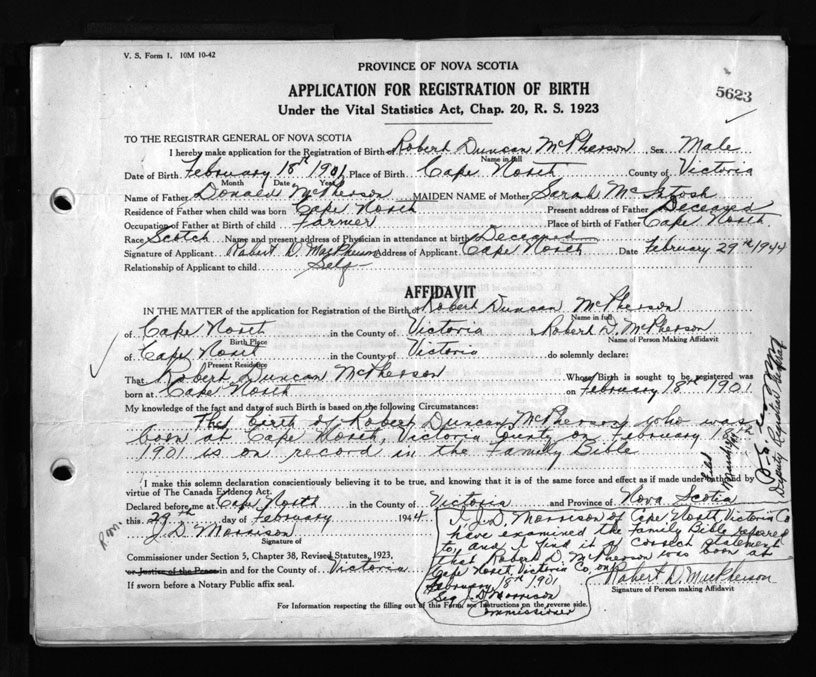 V. S. Form 1. 10M 10-42
PROVINCE OF NOVA SCOTIA
APPLICATION FOR REGISTRATION OF BIRTH
5623
Under the Vital Statistics Act, Chap. 20, R. S. 1923
TO THE REGISTRAR GENERAL OF NOVA SCOTIA
I hereby make application for the Registration of Birth of Robert Duncan McPherson Sex Male
Name in full
Date of Birth February 18th 1901 Place of Birth Cape North County of Victoria
Month Date Year
Name of Father Donald McPherson MAIDEN NAME of Mother Sarah McIntosh
Residence of Father when child was born Cape North Present address of Father Deceased
Occupation of Father at Birth of child Farmer Place of birth of Father Cape North
Race Scotch Name and present address of Physician in attendance at birth Deceased
Signature of Applicant Robert D. MacPherson Address of Applicant Cape North Date February 29th 1944
Relationship of Applicant to child Self
AFFIDAVIT
IN THE MATTER of the application for Registration of the Birth of Robert Duncan McPherson
Name in full
of Cape North in the County of Victoria Robert D. McPherson
Birth Place Name of Person Making Affidavit
of Cape North in the County of Victoria do solemnly declare:
Present Residence
That Robert Duncan McPherson Whose Birth is sought to be registered was
born at Cape North on February 18th 1901
My knowledge of the fact and date of such Birth is based on the following Circumstances:
The birth of Robert Duncan McPherson who was
born at Cape North, Victoria County on February 18th
1901 is on record in the Family Bible
I make this solemn declaration conscientiously believing it to be true, and knowing that it is of the same force and effect as if made under oath and by
virtue of The Canada Evidence Act.
Declared before me at Cape North in the County of Victoria and Province of Nova Scotia
this 29th day of February 1944
J. D. Morrison
Signature of
Commissioner under Section 5, Chapter 38, Revised Statutes, 1923,
or Justice of the Peace in and for the County of Victoria
If sworn before a Notary Public affix seal.
I, J. D. Morrison of Cape North, Victoria Co
have examined the Family Bible referred
to, and I find it a correct statement
that Robert D. McPherson was born at
Cape North, Victoria Co, on
February 18th 1901
Sig J. D. Morrison
Commissioner
Robert D. MacPherson
Signature of Person making Affidavit
For Information respecting the filling out of this Form, see Instructions on the reverse side.
Deputy Registrar General